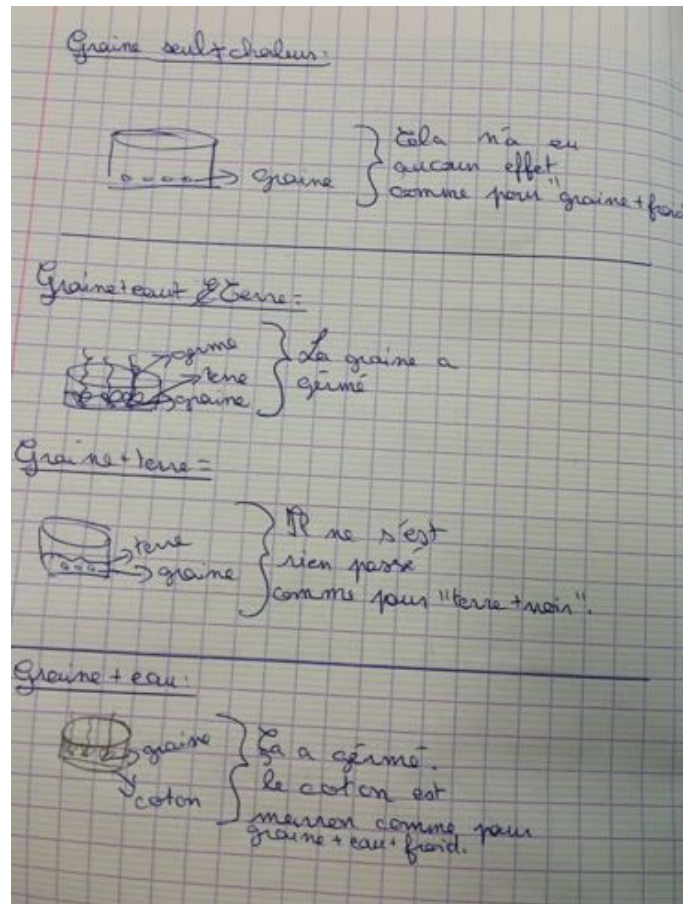 Graine seul + chaleur:
Cela n'a eu
aucun effet
graine
comme pour "graine + froid
Graine + eau + & Terre =
germe
terre
graine
La graine a
gérmé
Graine + terre =
terre
graine
Il ne s'est
rien passé
comme pour "terre + noir".
Graine + eau:
graine
coton
Ça a gérmé.
le coton est
marron comme pour
graine + eau + froid.